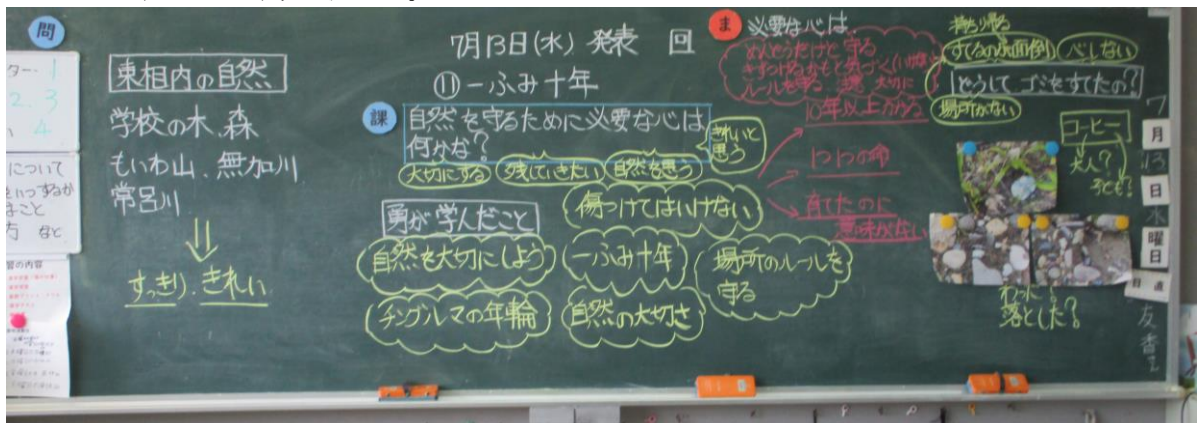 問
東相内の自然
学校の木、森
もいわ山、無加川
常呂川
すっきり、きれい
7月13日(水) 発表 回
⑪一ふみ十年
課
自然を守るために必要な心は
何かな?
きれいと
思う
大切にする
残していきたい
自然を思う
勇が学んだこと
傷つけてはいけない
自然を大切にしよう
一ふみ十年
場所のルールを
守る
チングルマの年輪
自然の大切さ
ま
必要な心は
めんどうだけど守る
ルールを守る
大切に
10年以上かかる
1つ1つの命
育てたのに
意味がない
持ち帰る
すてるのが面倒
心しない
どうしてゴミをすてたの?
場所がない
コーヒー
大人?
子ども?
落とした?
7
月
13
日
水
曜
日
日直